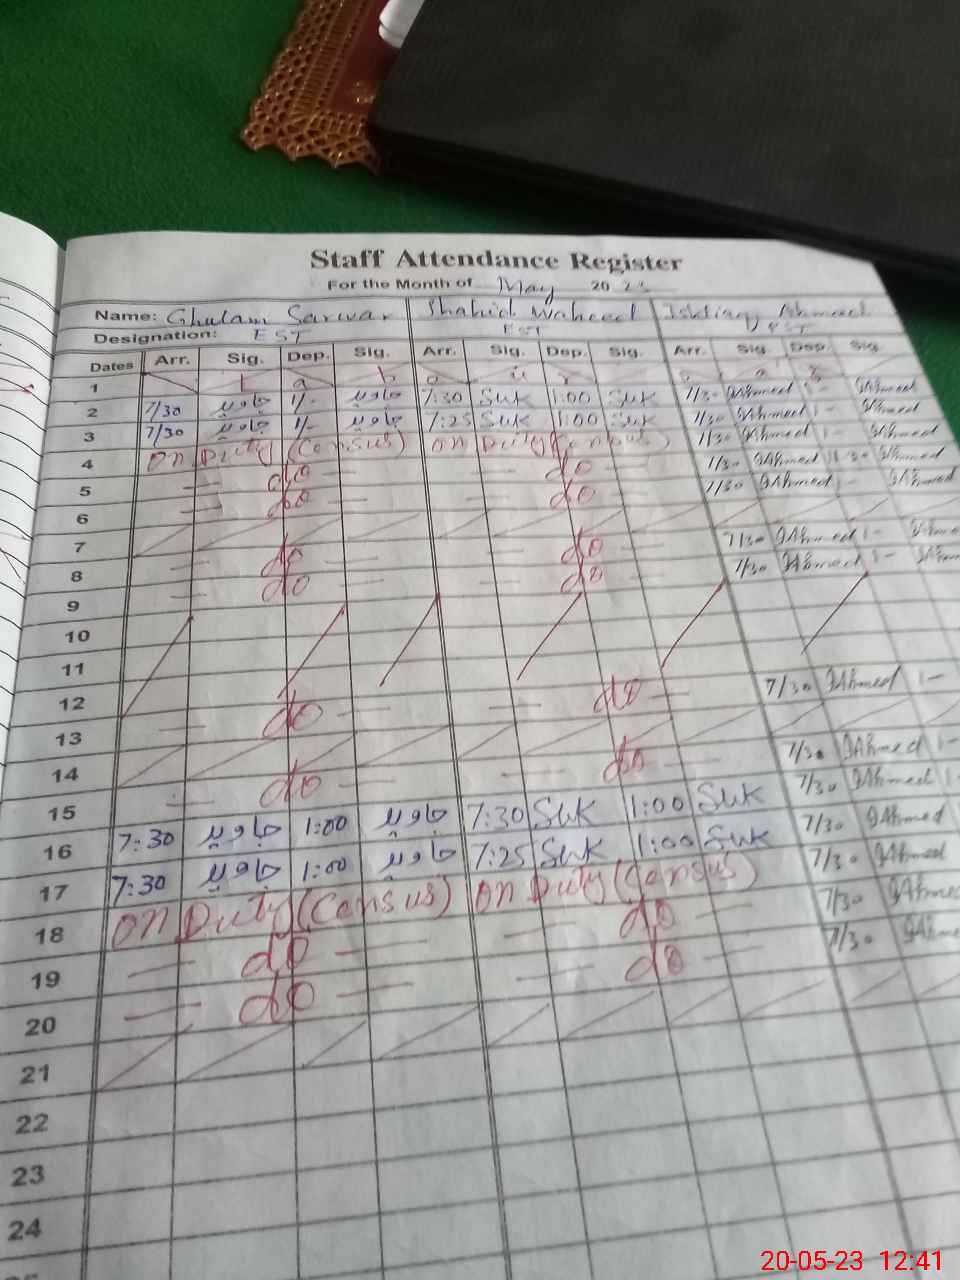 Staff Attendance Register
For the Month of May 2023
Name: Ghulam Sarwar Shahid Waheed Ishtiaq Ahmed
Designation: EST EST PST
Dates Arr. Sig. Dep. Sig. Arr. Sig. Dep. Sig. Arr. Sig. Dep. Sig.
1
2 7/30 جاوید 1/- جاوید 7:30 SWK 1:00 SWK 7/30 IAhmed 1- IAhmed
3 7/30 جاوید 1/- جاوید 7:25 SWK 1:00 SWK 7/30 IAhmed 1- IAhmed
4 On Duty (Census) On Duty (Census) 7/30 IAhmed 1- IAhmed
5 do do 7/30 IAhmed 11-30 IAhmed
6 do do 7/30 IAhmed 1- IAhmed
7
8 do do 7/30 IAhmed 1- IAhmed
9 do do 7/30 IAhmed 1- IAhmed
10
11
12
13 do do 7/30 IAhmed 1-
14
15 do do 7/30 IAhmed 1-
16 7:30 جاوید 1:00 جاوید 7:30 SWK 1:00 SWK 7/30 IAhmed 1-
17 7:30 جاوید 1:00 جاوید 7:25 SWK 1:00 SWK 7/30 IAhmed
18 On Duty (Census) On Duty (Census) 7/30 IAhmed
19 do do 7/30 IAhmed
20 do do 7/30 IAhmed
21
22
23
24
20-05-23 12:41